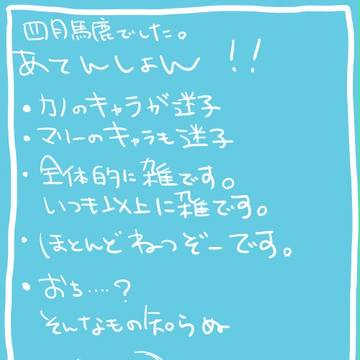 四月馬鹿でした。
あてんしょん !!
・カノのキャラが迷子
・マリーのキャラも迷子
・全体的に雑です。
いつも以上に雑です。
・ほとんどねつぞーです。
・おち……?
そんなもの知らぬ